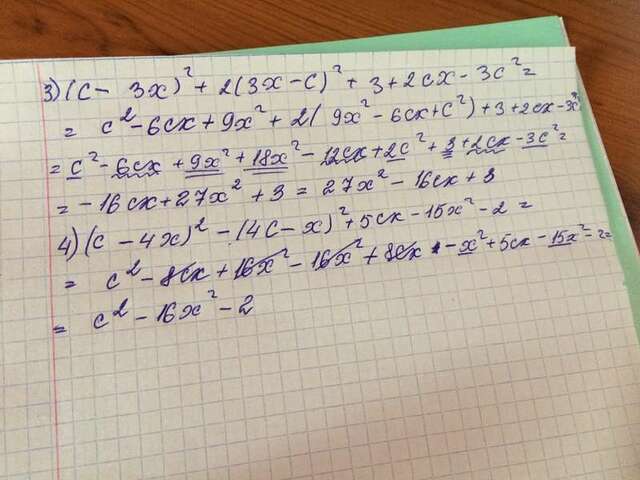 3) (c - 3x)² + 2(3x - c)² + 3 + 2cx - 3c² =
= c² - 6cx + 9x² + 2(9x² - 6cx + c²) + 3 + 2cx - 3c²
= c² - 6cx + 9x² + 18x² - 12cx + 2c² + 3 + 2cx - 3c² =
= -16cx + 27x² + 3 = 27x² - 16cx + 3
4) (c - 4x)² - (4c - x)² + 5cx - 15x² - 2 =
= c² - 8cx + 16x² - 16x² + 8cx - x² + 5cx - 15x² - 2 =
= c² - 16x² - 2